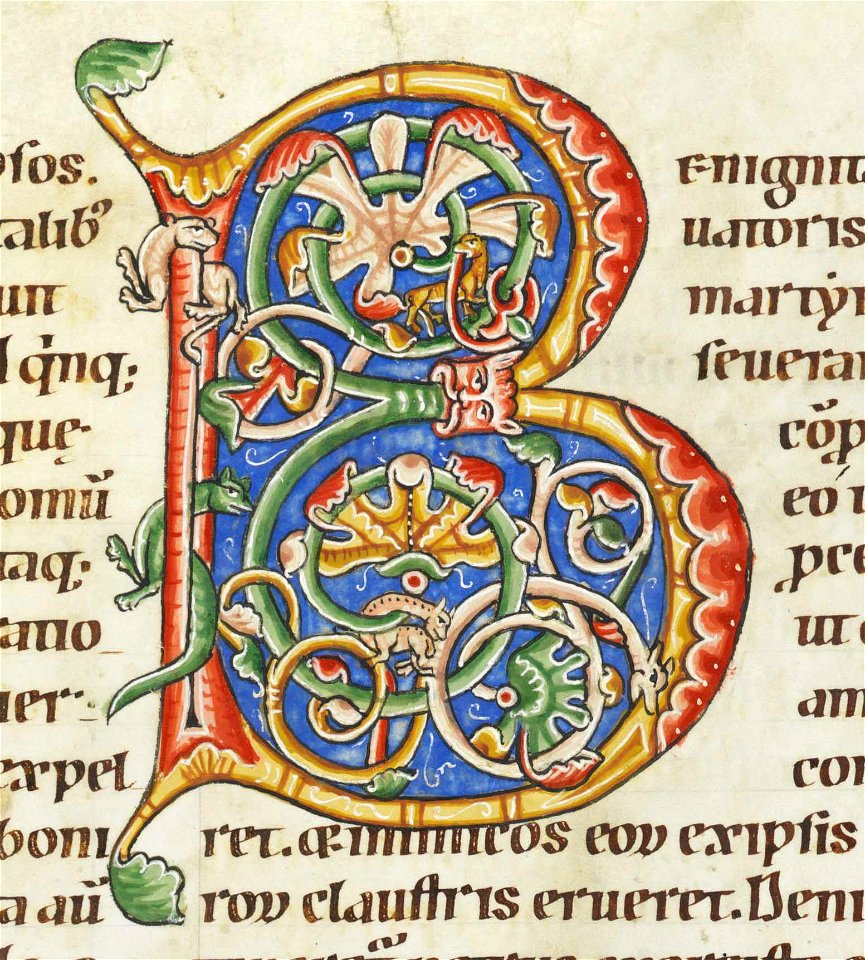 sos.
talibꝰ
unt
q̇nq;
quę·
omū
taq;
ratio
uer·
expel
boni
a aū
Benignita
uatoris
martẏr
seuerar
cōp
eo
pce
ut
am
con
ret. & inimicos eoꝝ exipsis
roꝝ claustris erueret. Deni